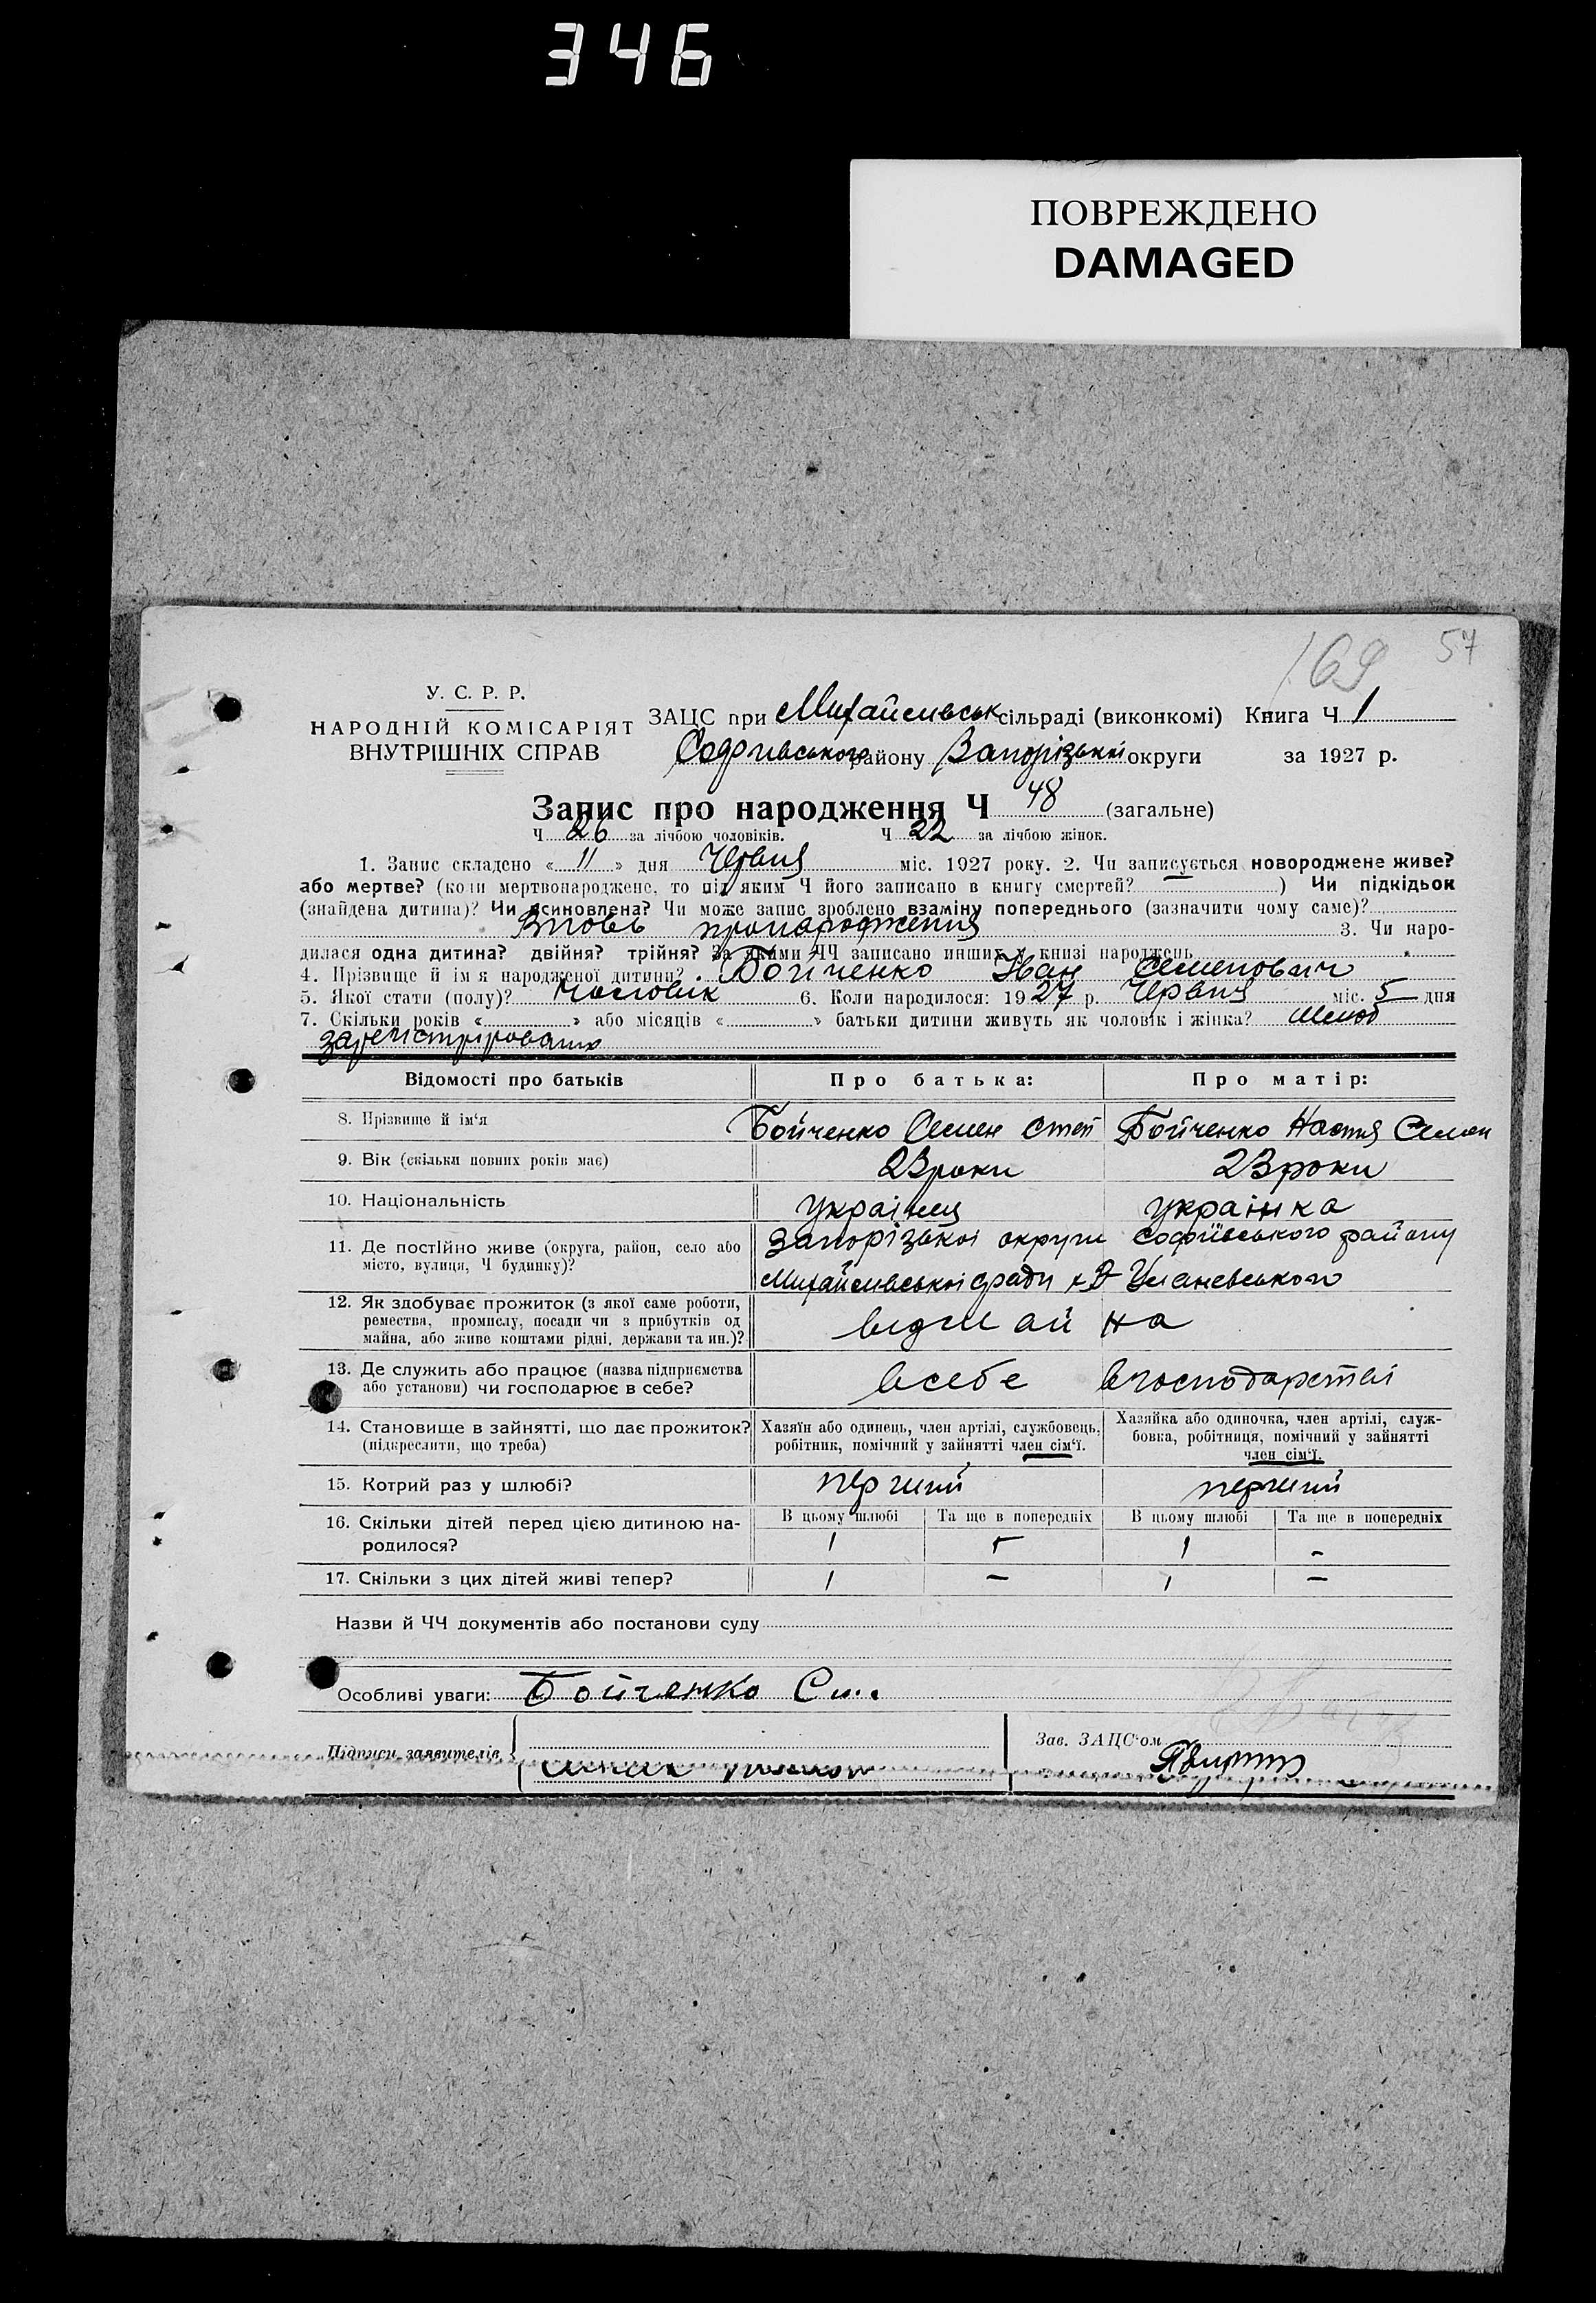 346
ПОВРЕЖДЕНО
DAMAGED
169 57
У. С. Р. Р.
НАРОДНІЙ КОМІСАРІЯТ
ВНУТРІШНІХ СПРАВ
ЗАЦС при Михайлівськ сільраді (виконкомі) Книга Ч 1
Софиівського району Запорізької округи за 1927 р.
Запис про народження Ч 48 (загальне)
Ч 26 за лічбою чоловіків. Ч 22 за лічбою жінок.
1. Запис складено « 11 » дня Червця міс. 1927 року. 2. Чи записується новороджене живе?
або мертве? (коли мертвонароджене, то під яким Ч його записано в книгу смертей? — ) Чи підкідьок
(знайдена дитина)? Чи всиновлена? Чи може запис зроблено взаміну попереднього (зазначити чому саме)?
Вновь 3. Чи наро-
дилася одна дитина? двійня? трійня? За якими ЧЧ записано инших у книзі народжень
4. Прізвище й ім'я народженої дитини? Бойченко Іван Семенович
5. Якої стати (полу)? Чоловік 6. Коли народилося: 1927 р. Червця міс. 5 дня
7. Скільки років « » або місяців « » батьки дитини живуть як чоловік і жінка? Шлюб
зарегістріровано
Відомості про батьків Про батька: Про матір:
8. Прізвище й ім'я Бойченко Семен Степ Бойченко Настя Семен
9. Вік (скільки повних років має) 23 роки 23 роки
10. Національність Українец українка
11. Де постійно живе (округа, район, село або Запорізької округи Софиївського району
місто, вулиця, Ч будинку)? Михайлівської сради
12. Як здобуває прожиток (з якої саме роботи,
ремества, промислу, посади чи з прибутків од
майна, або живе коштами рідні, держави та ин.)? від май на
13. Де служить або працює (назва підприємства
або установи) чи господарює в себе? всебе вгосподарстві
14. Становище в зайнятті, що дає прожиток? Хазяїн або одинець, член артілі, службовець, Хазяйка або одиночка, член артілі, служ-
(підкреслити, що треба) робітник, помічний у зайнятті член сім'ї. бовка, робітниця, помічний у зайнятті
член сім'ї.
15. Котрий раз у шлюбі? перший перший
16. Скільки дітей перед цією дитиною на- В цьому шлюбі Та ще в попередніх В цьому шлюбі Та ще в попередніх
родилося? 1 – 1 –
17. Скільки з цих дітей живі тепер? 1 – 1 –
Назви й ЧЧ документів або постанови суду
Особливі уваги: Бойченко
Підписи заявителів Зав. ЗАЦС'ом